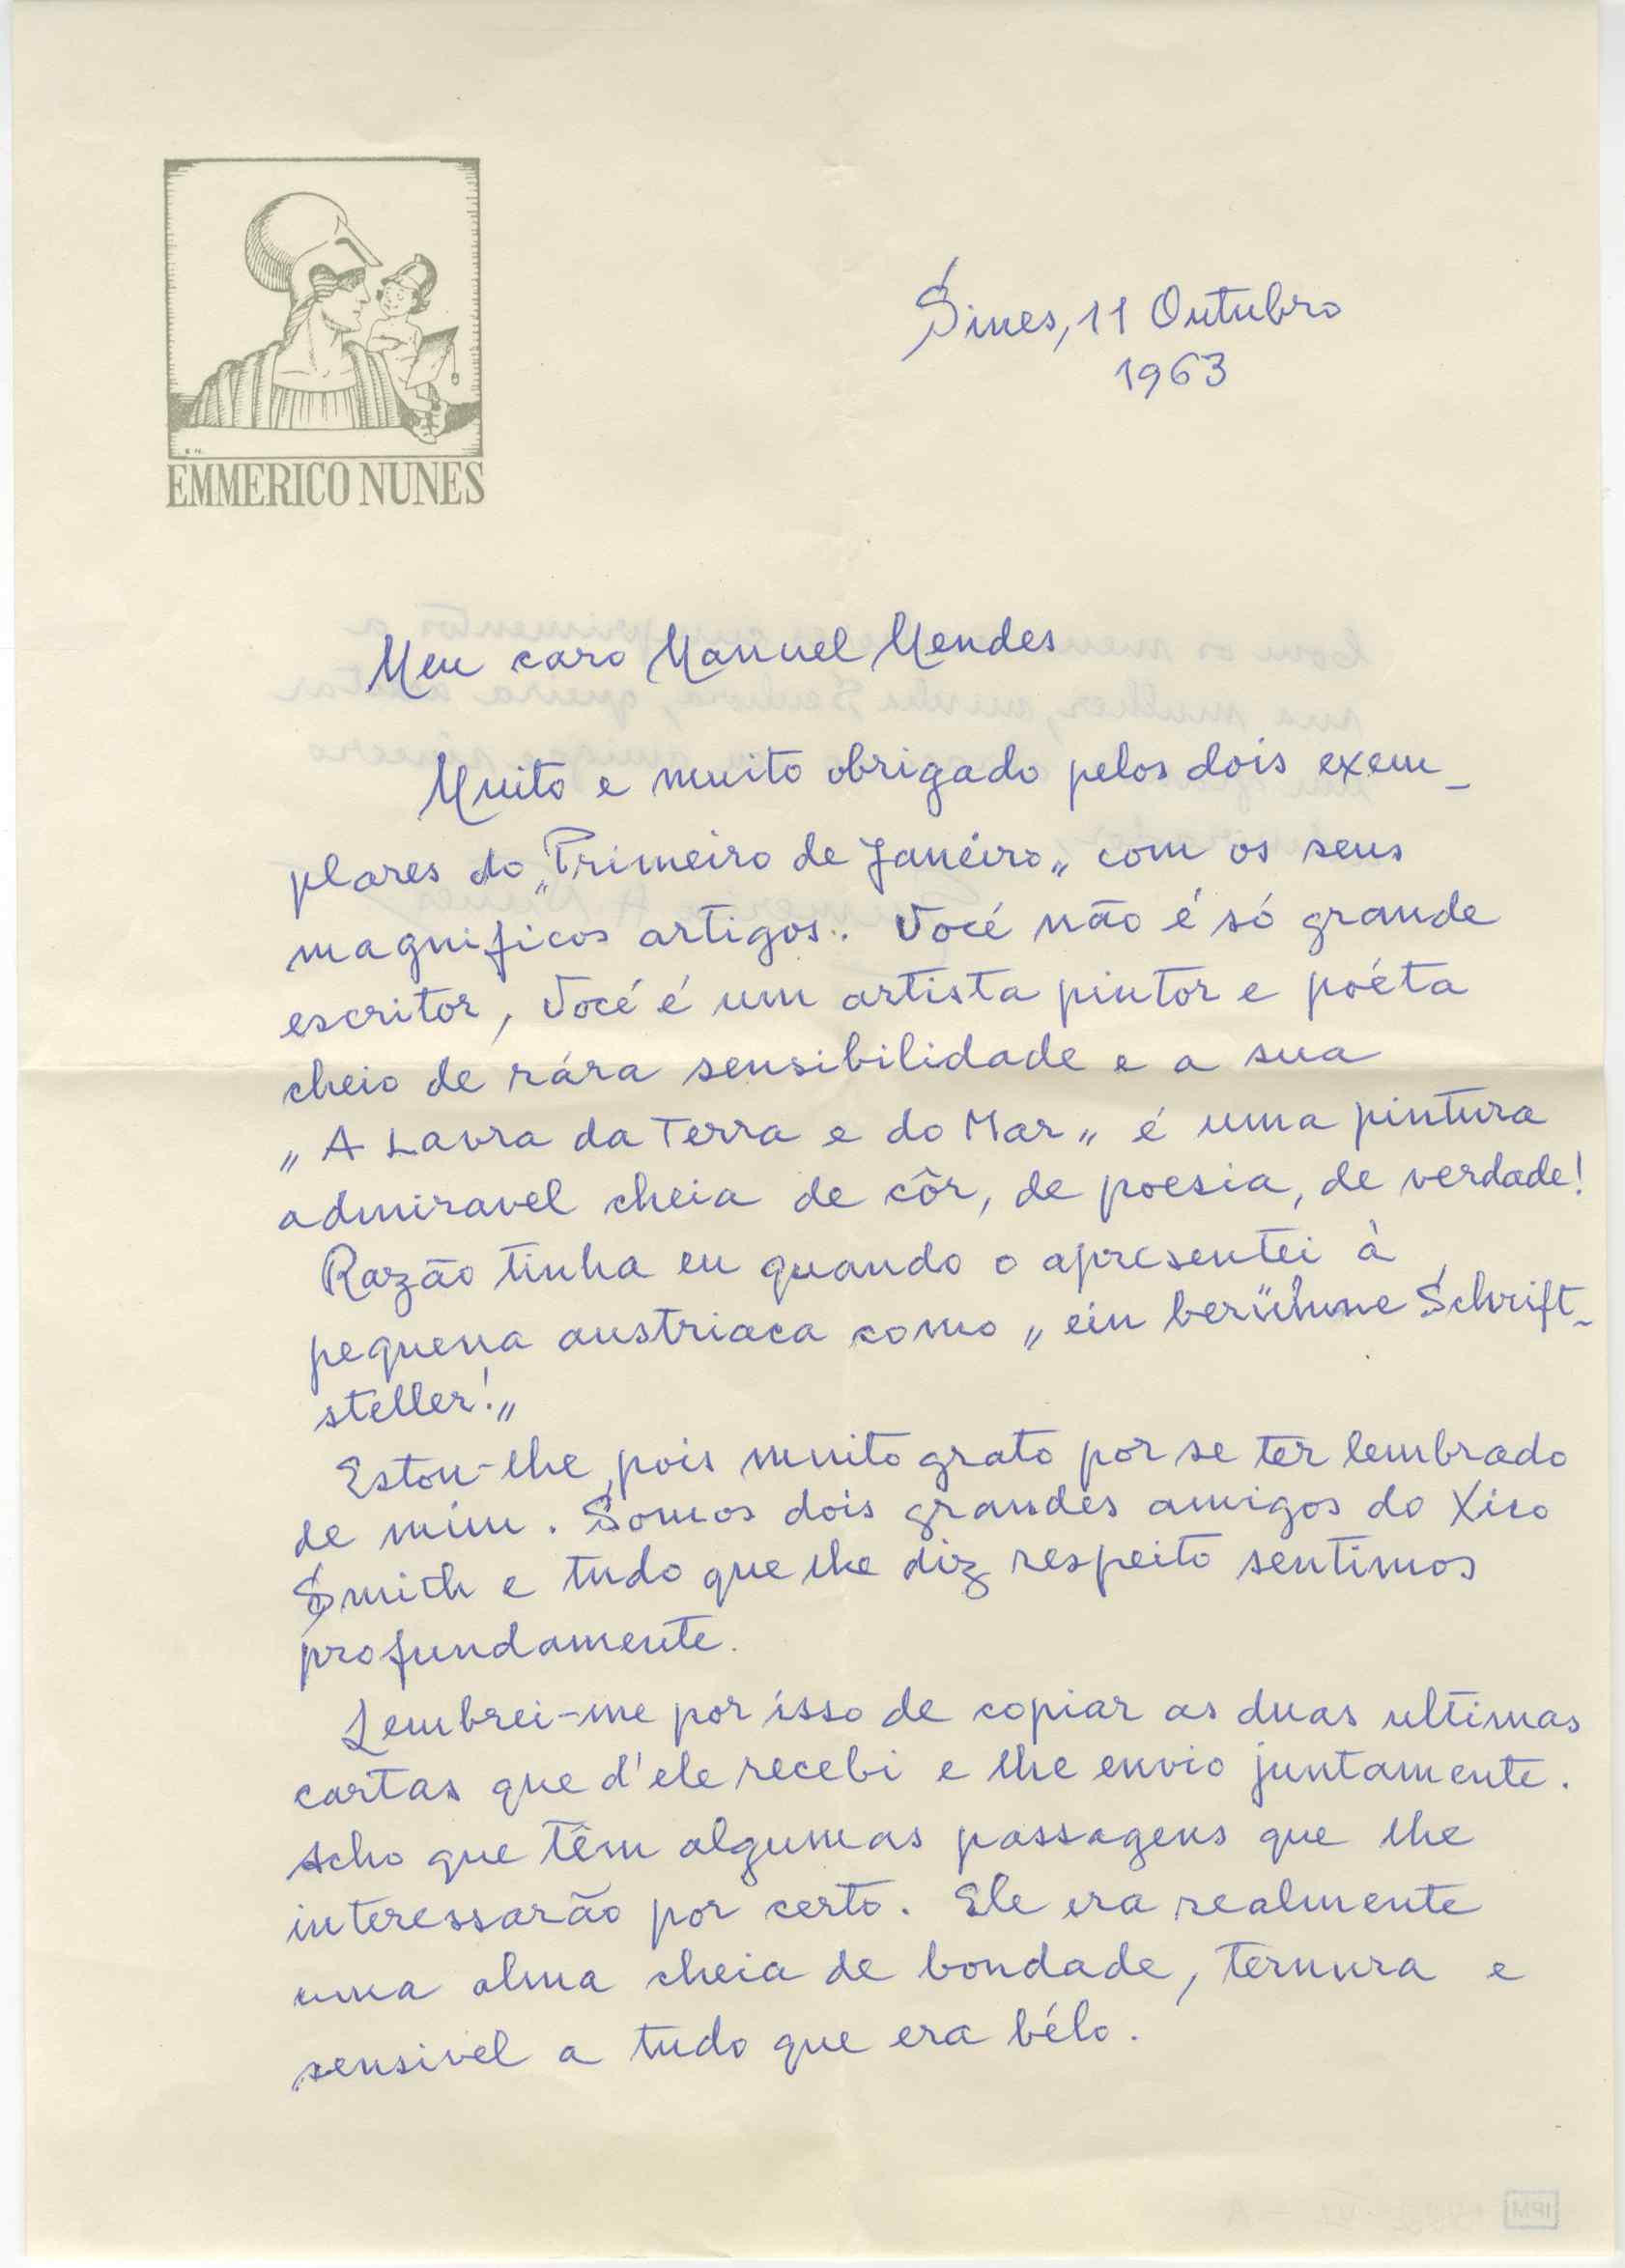 EMMERICO NUNES
Sines, 11 Outubro
1963
Meu caro Manuel Mendes
Muito e muito obrigado pelos dois exem_
plares do „Primeiro de Janeiro„ com os seus
magnificos artigos. Você não é só grande
escritor, Você é um artista pintor e poéta
cheio de rára sensibilidade e a sua
„A Lavra da Terra e do Mar„ é uma pintura
admiravel cheia de côr, de poesia, de verdade!
Razão tinha eu quando o apresentei à
pequena austriaca como „ein berühme Schrift_
steller!„
Estou-lhe, pois muito grato por se ter lembrado
de mim. Somos dois grandes amigos do Xico
Smith e tudo que lhe diz respeito sentimos
profundamente.
Lembrei-me por isso de copiar as duas ultimas
cartas que d'ele recebi e lhe envio juntamente.
Acho que têm algumas passagens que lhe
interessarão por certo. Ele era realmente
uma alma cheia de bondade, ternura e
sensivel a tudo que era bélo.
IPM